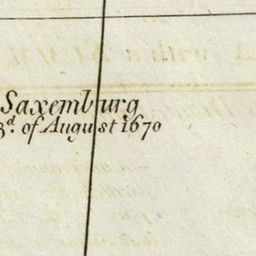 Saxemburg
3d. of August 1670